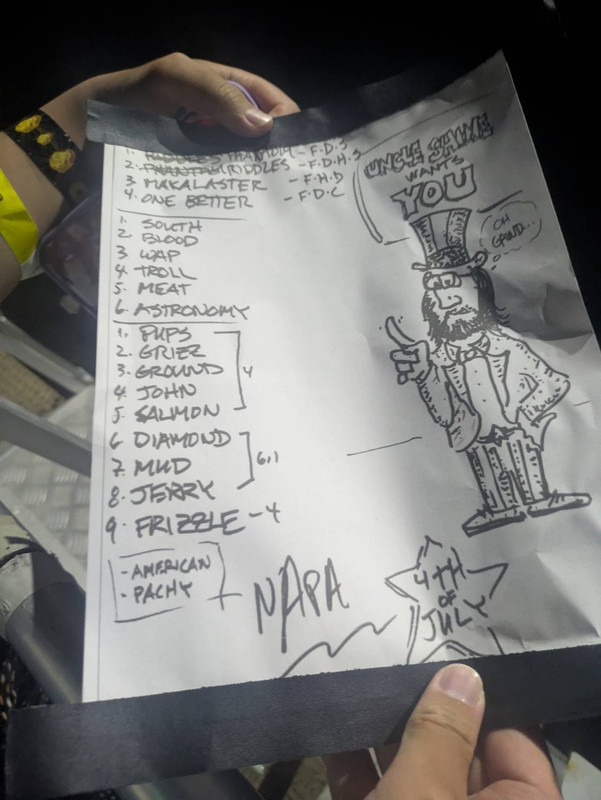 1. RIDDLES PHANTOM - F.D.S
2. PHANTOM RIDDLES - F.D.H.S
3 MAKALASTER - F.H.D
4. ONE BETTER - F.D.C
1. SOUTH
2. BLOOD
3 WAP
4. TROLL
5. MEAT
6. ASTRONOMY
1. PUPS
2. GRIER
3. GROUND
4. JOHN
5. SALMON
4
6 DIAMOND
7. MUD
8. JERRY
6,1
9. FRIZZLE - 4
- AMERICAN
- PACHY
NAPA
UNCLE SHANE
WANTS
YOU
OH
4TH
OF
JULY